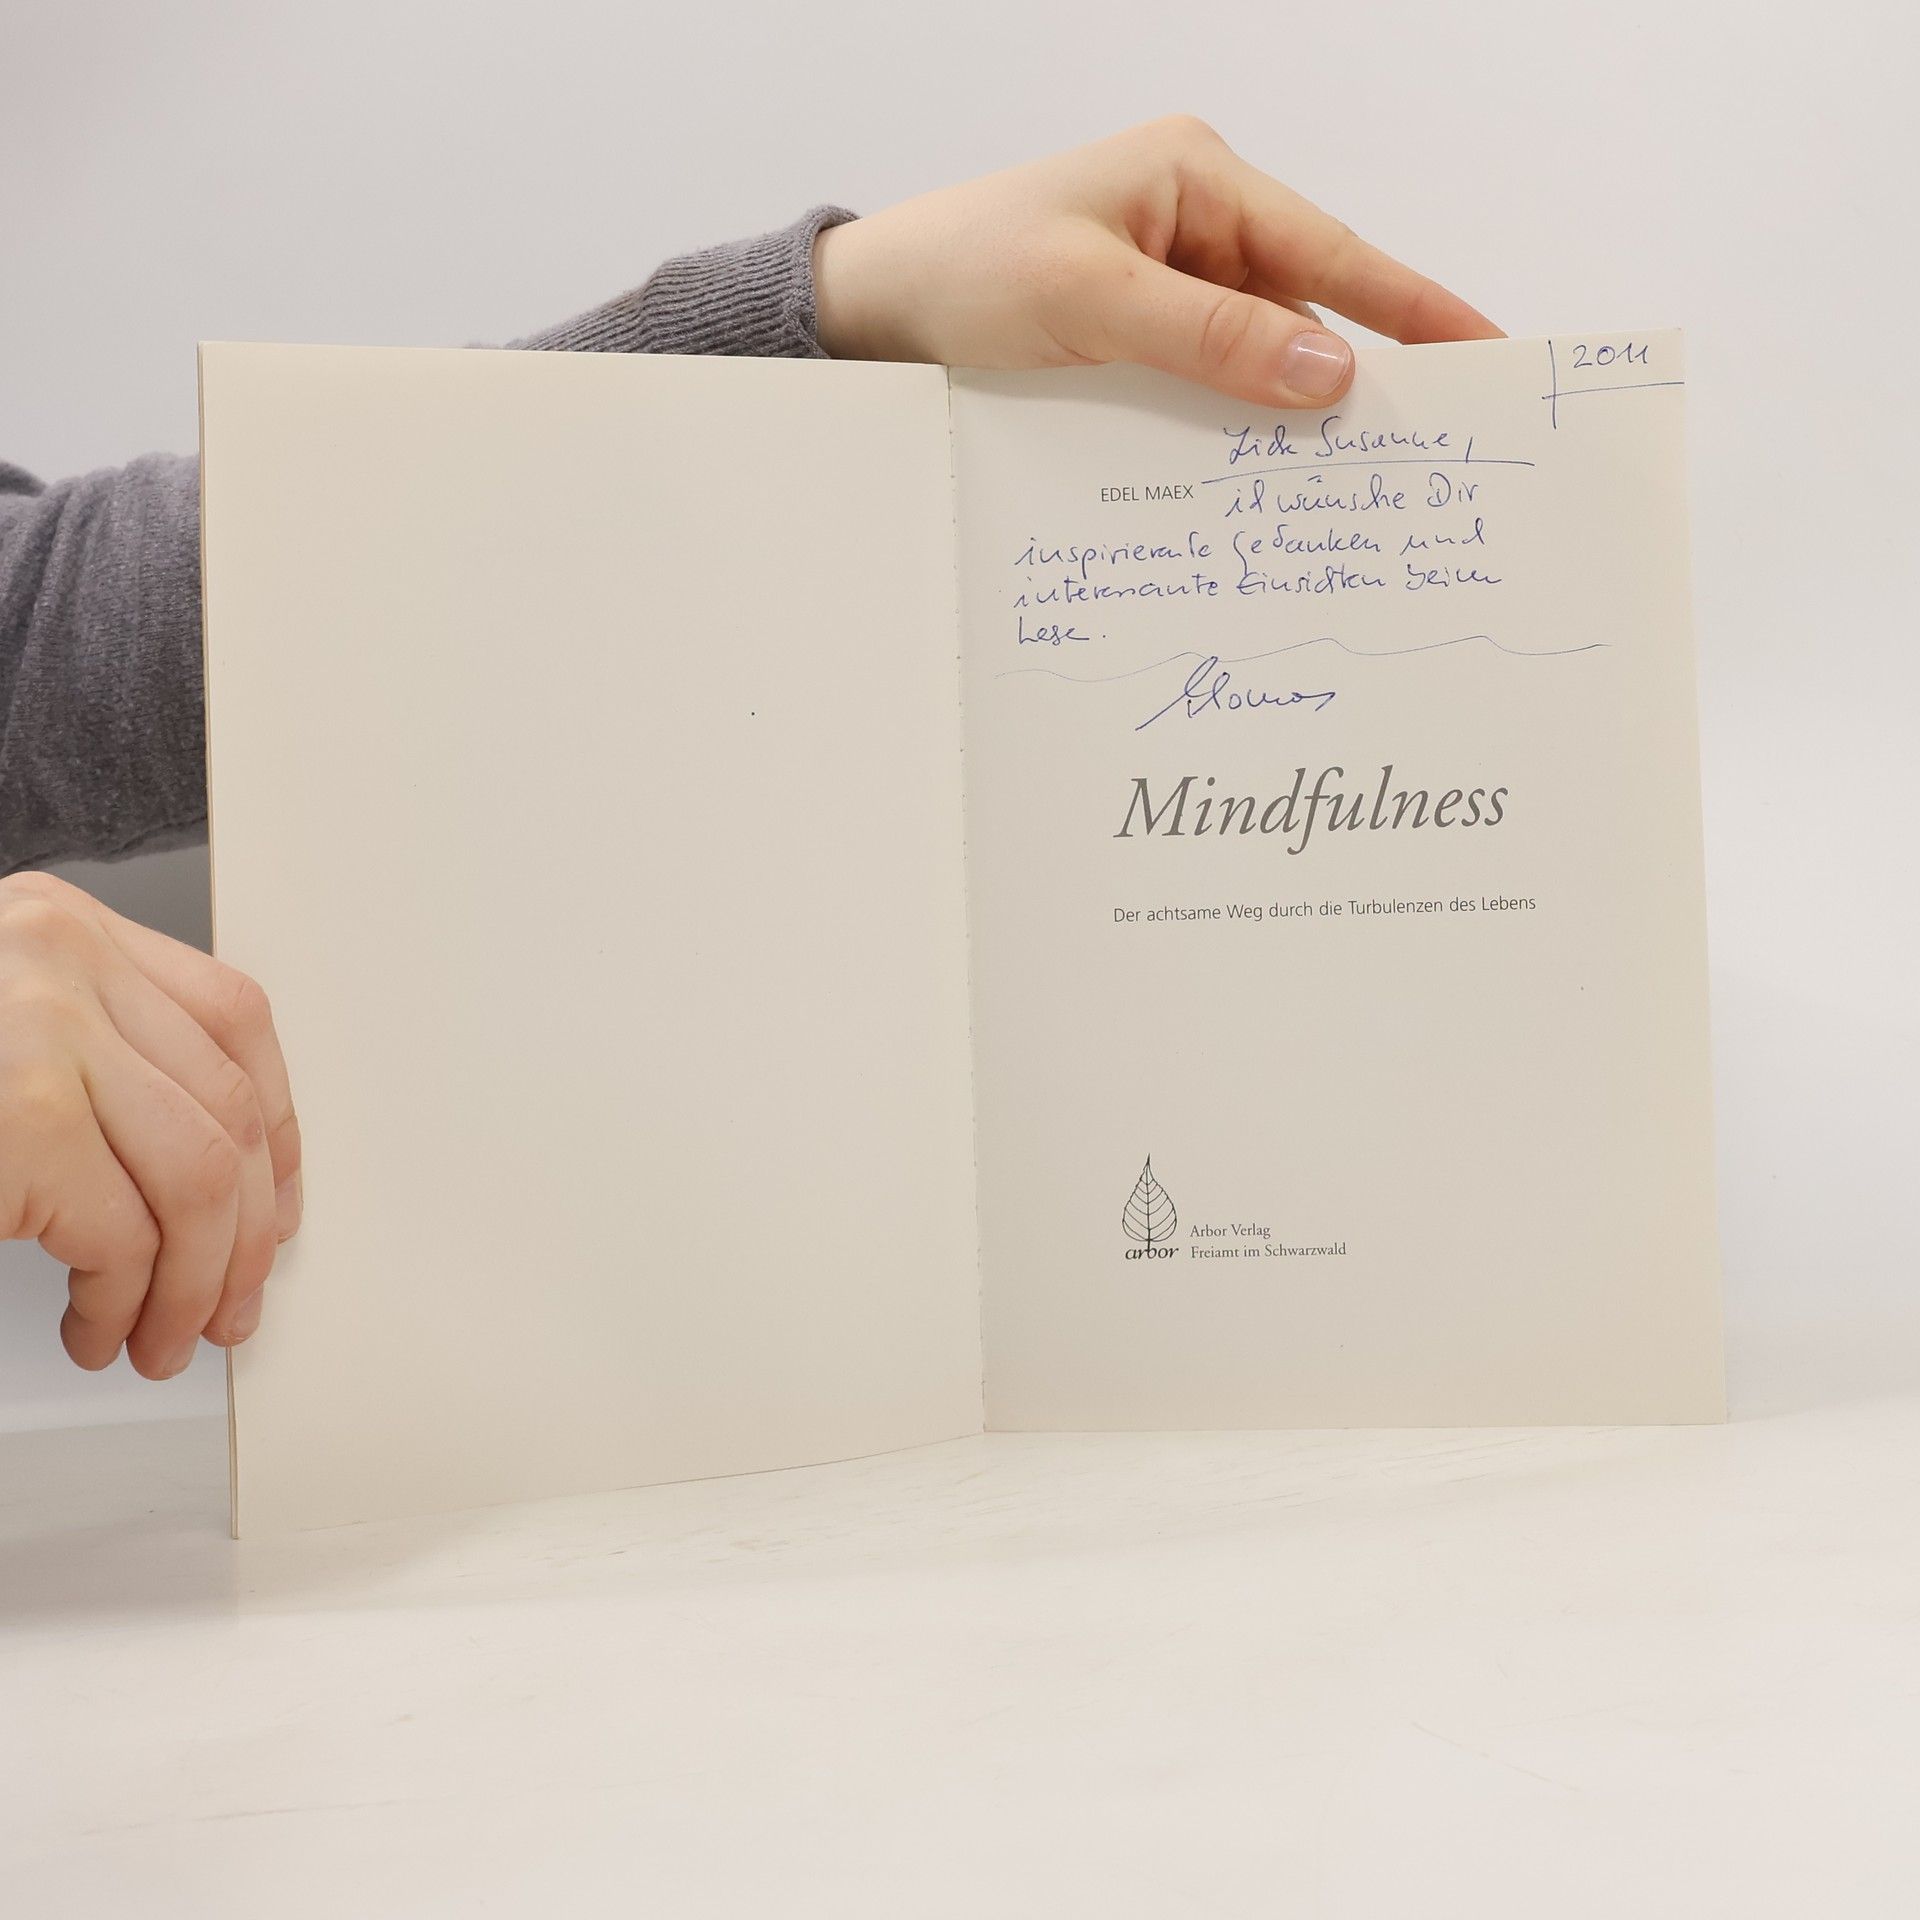 2011
Liebe Susanne,
EDEL MAEX
ich wünsche Dir
inspirierende Gedanken und
interessante Einsichten beim
Lese.
Mindfulness
Der achtsame Weg durch die Turbulenzen des Lebens
arbor
Arbor Verlag
Freiamt im Schwarzwald